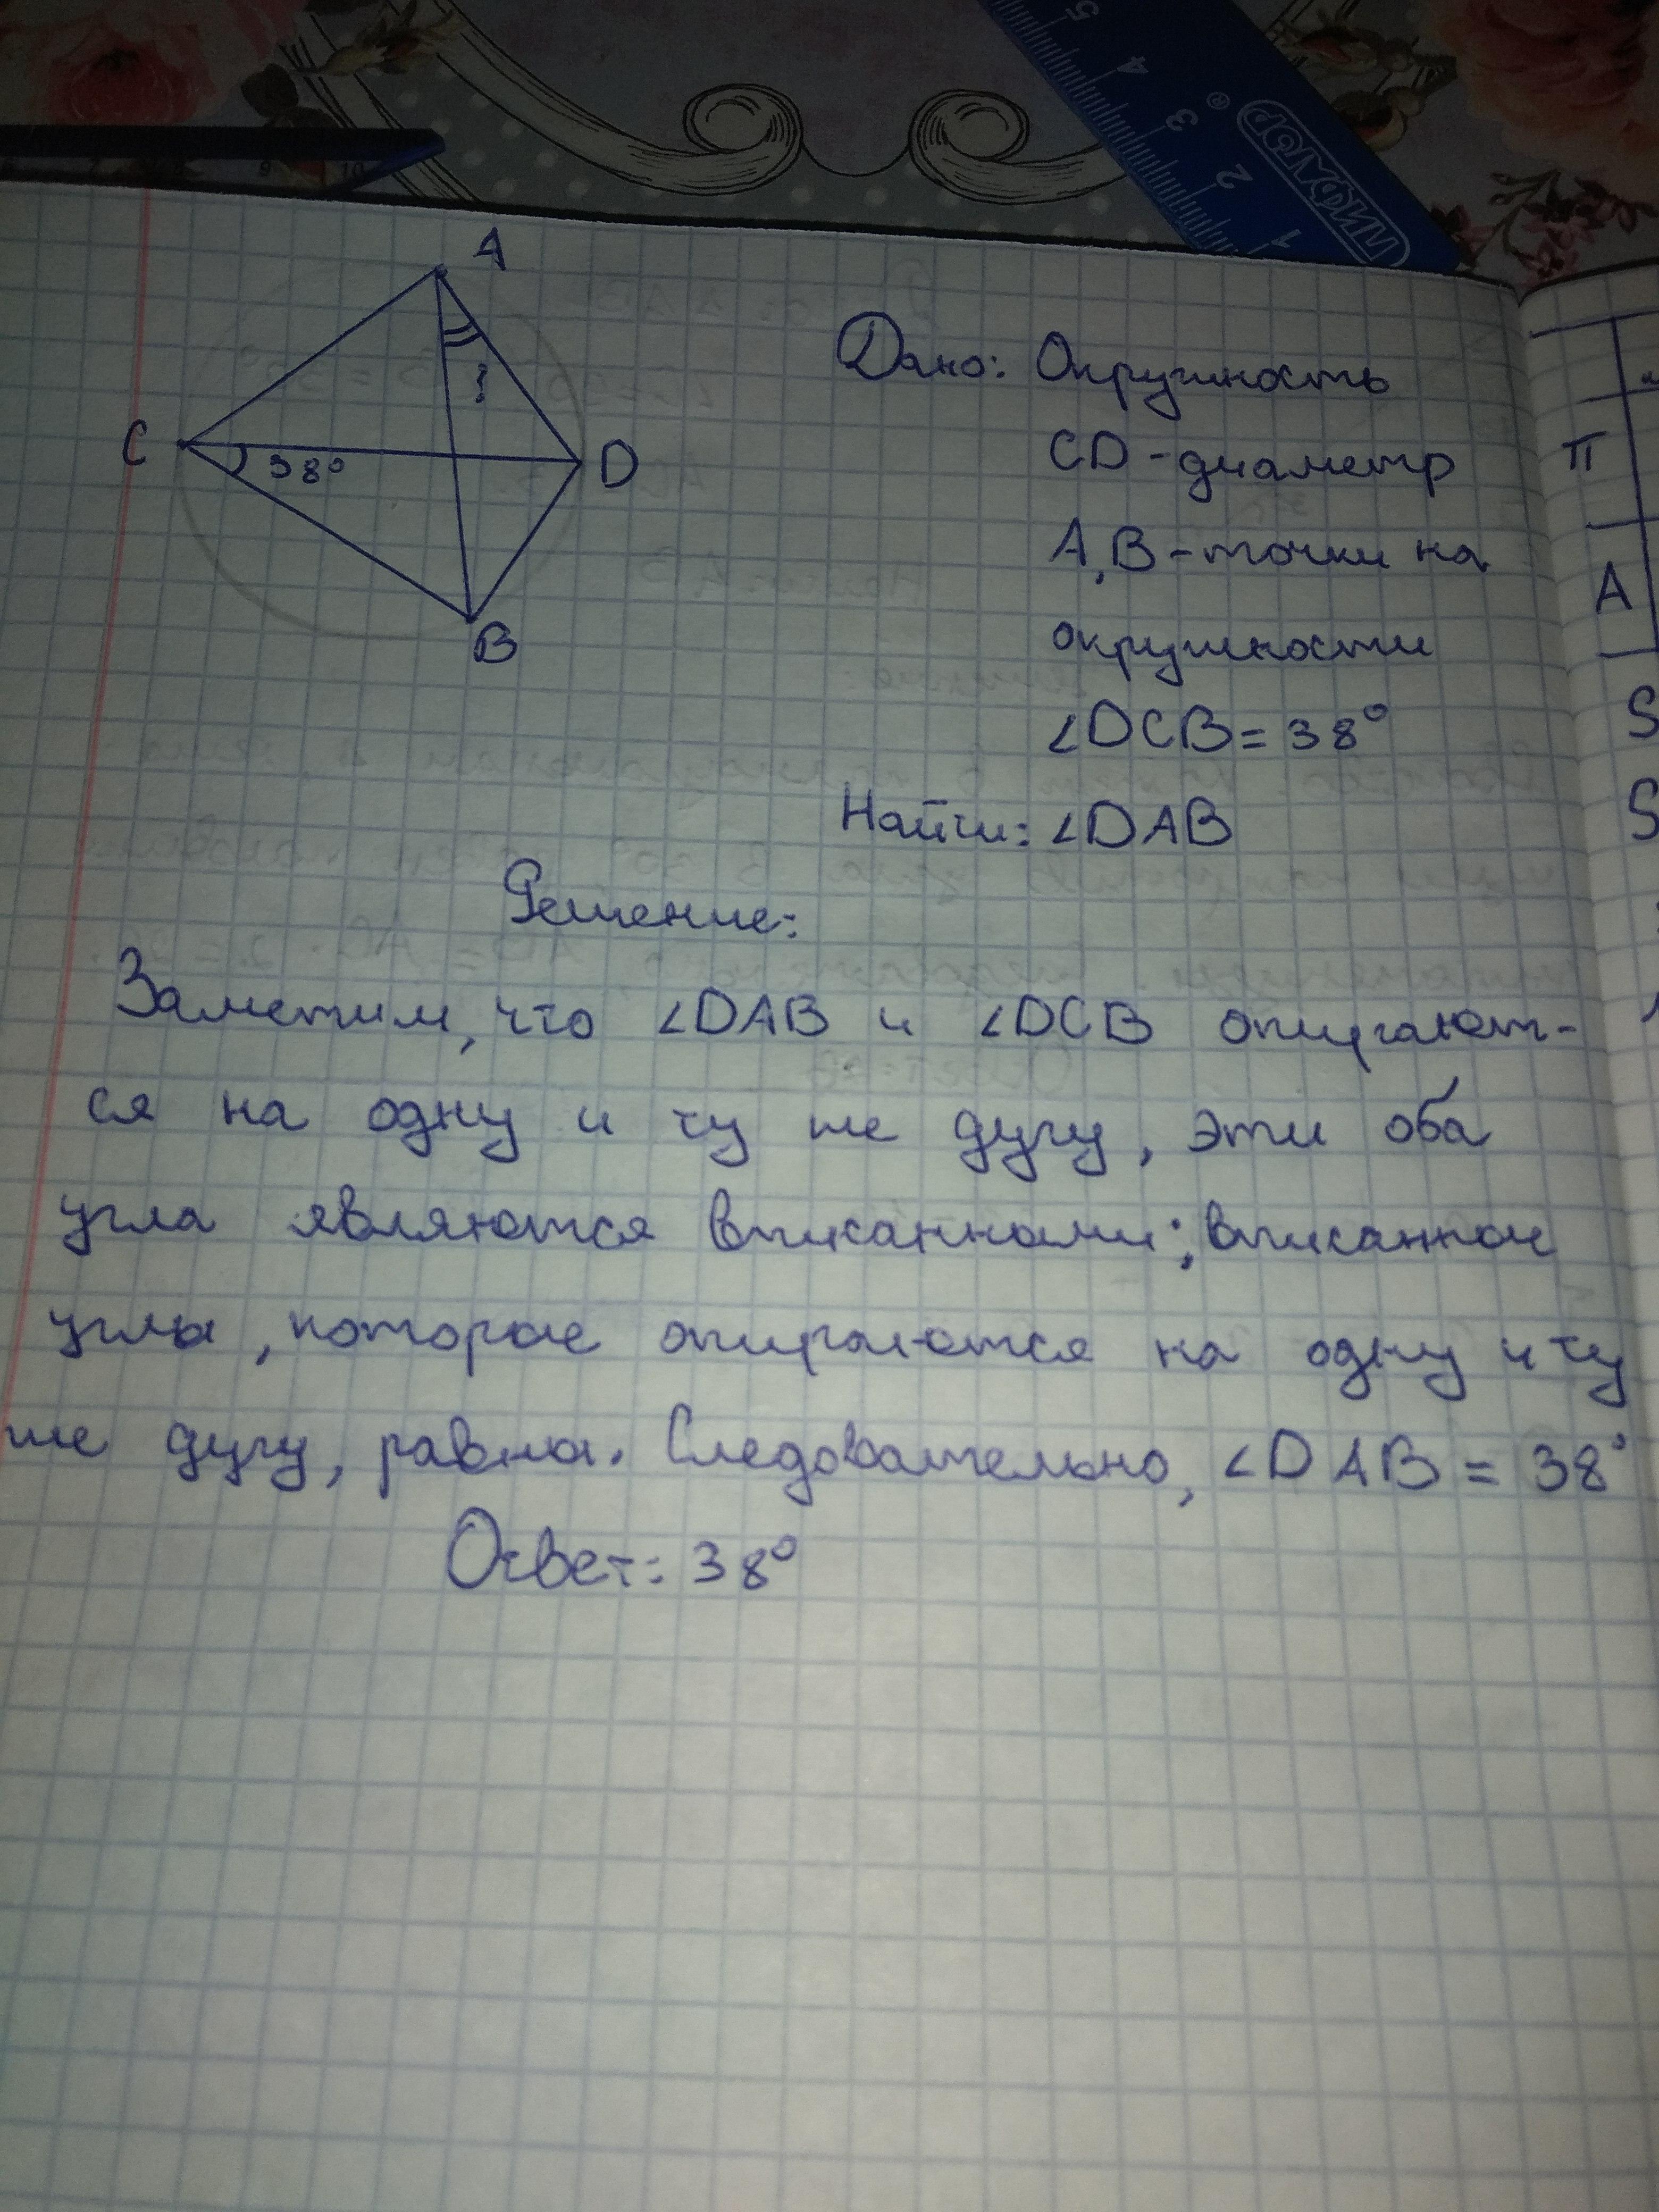 5
4
3
2
1
ПИФАГОР®
7
9
10
A
?
C
38°
D
B
Дано: Окружность
CD - диаметр
A, B - точки на
окружности
∠DCB = 38°
Найти: ∠DAB
Решение:
Заметим, что ∠DAB и ∠DCB опирают-
ся на одну и ту же дугу, эти оба
угла являются вписанными; вписанные
углы, которые опираются на одну и ту
же дугу, равны. Следовательно, ∠DAB = 38°
Ответ: 38°
П
А
S
S